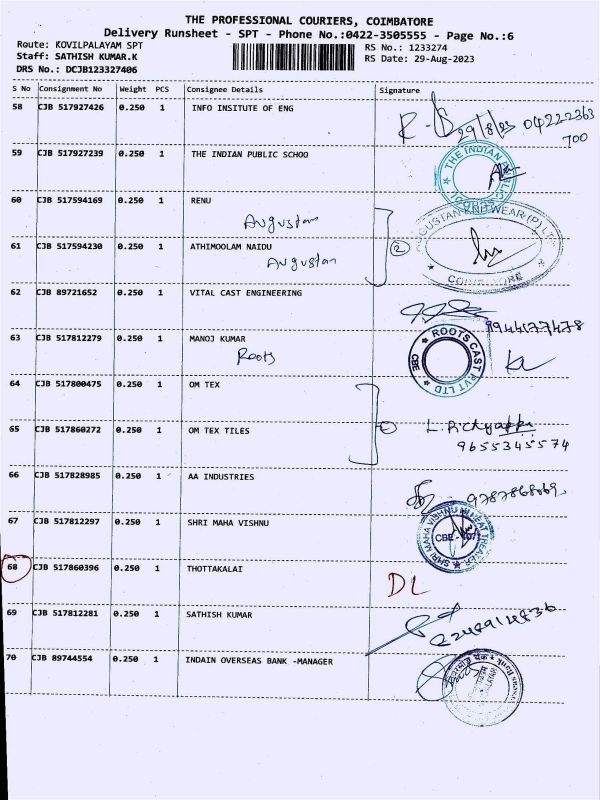 THE PROFESSIONAL COURIERS, COIMBATORE
Delivery Runsheet - SPT - Phone No.:0422-3505555 - Page No.:6
Route: KOVILPALAYAM SPT RS No.: 1233274
Staff: SATHISH KUMAR.K RS Date: 29-Aug-2023
DRS No.: DCJB123327406
S No Consignment No Weight PCS Consignee Details Signature
58 CJB 517927426 0.250 1 INFO INSITUTE OF ENG
29/8/23 04222363
700
59 CJB 517927239 0.250 1 THE INDIAN PUBLIC SCHOO
THE INDIAN PUBLIC
60 CJB 517594169 0.250 1 RENU
Augustan
AUGUSTAN KNITWEAR (P) LTD
COIMBATORE
61 CJB 517594230 0.250 1 ATHIMOOLAM NAIDU
Augustan
2
62 CJB 89721652 0.250 1 VITAL CAST ENGINEERING
9944177478
63 CJB 517812279 0.250 1 MANOJ KUMAR
Roots
ROOTS CAST PVT LTD
CBE
64 CJB 517800475 0.250 1 OM TEX
65 CJB 517860272 0.250 1 OM TEX TILES
9655345574
66 CJB 517828985 0.250 1 AA INDUSTRIES
67 CJB 517812297 0.250 1 SHRI MAHA VISHNU
SHRI MAHA VISHNU
68 CJB 517860396 0.250 1 THOTTAKALAI
DL
69 CJB 517812281 0.250 1 SATHISH KUMAR
70 CJB 89744554 0.250 1 INDAIN OVERSEAS BANK -MANAGER